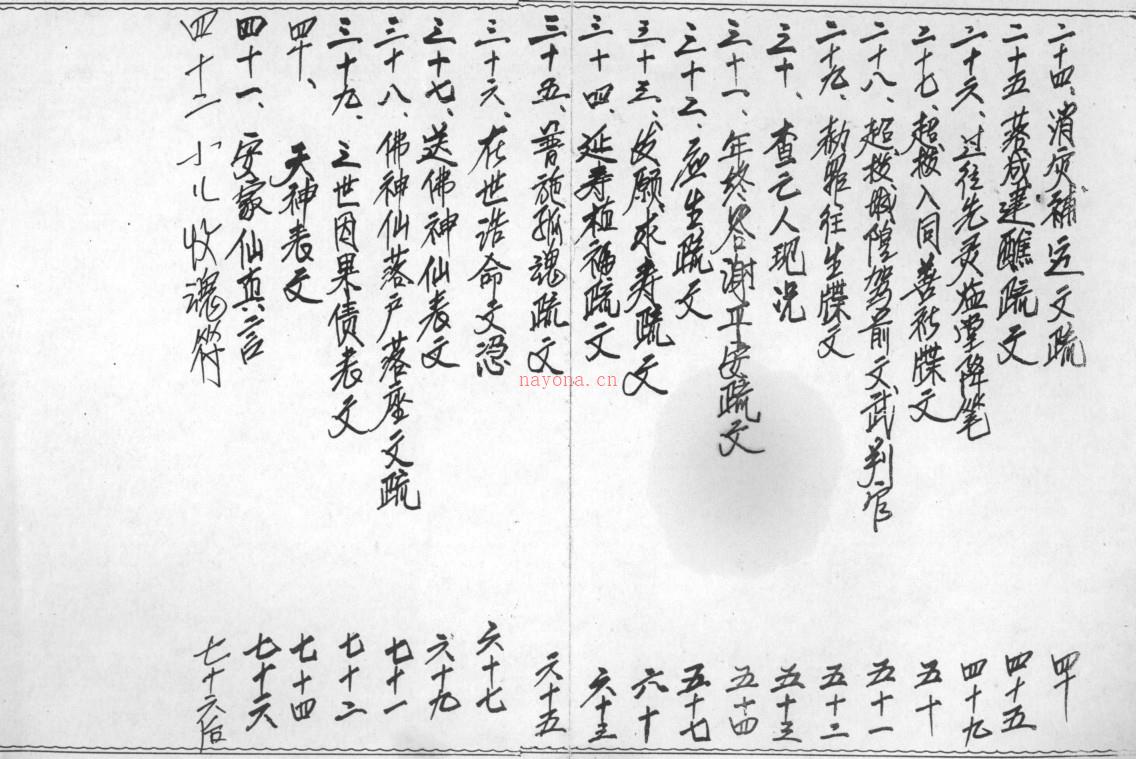 二十四、消灾補运文疏 四十
二十五 落成建醮疏文 四十五
二十六、过往先灵临堂降笔 四十九
二十七、超拔入同善社牒文 五十
二十八、超拔城隍驾前文武判官 五十一
二十九、勅照往生牒文 五十二
三十、查亡人现况 五十三
三十一、年终答谢平安疏文 五十四
三十二、应生疏文 五十七
三十三、发愿求寿疏文 六十
三十四 延寿植福疏文 六十三
三十五、普施孤魂疏文 六十五
三十六、在世诰命文憑 六十七
三十七、送佛神仙表文 六十九
三十八、佛神仙落户落座文疏 七十一
三十九、三世因果债表文 七十二
四十、天神表文 七十四
四十一、安家仙真言 七十六
四十二 小儿收魂符 七十六后
nayona.cn